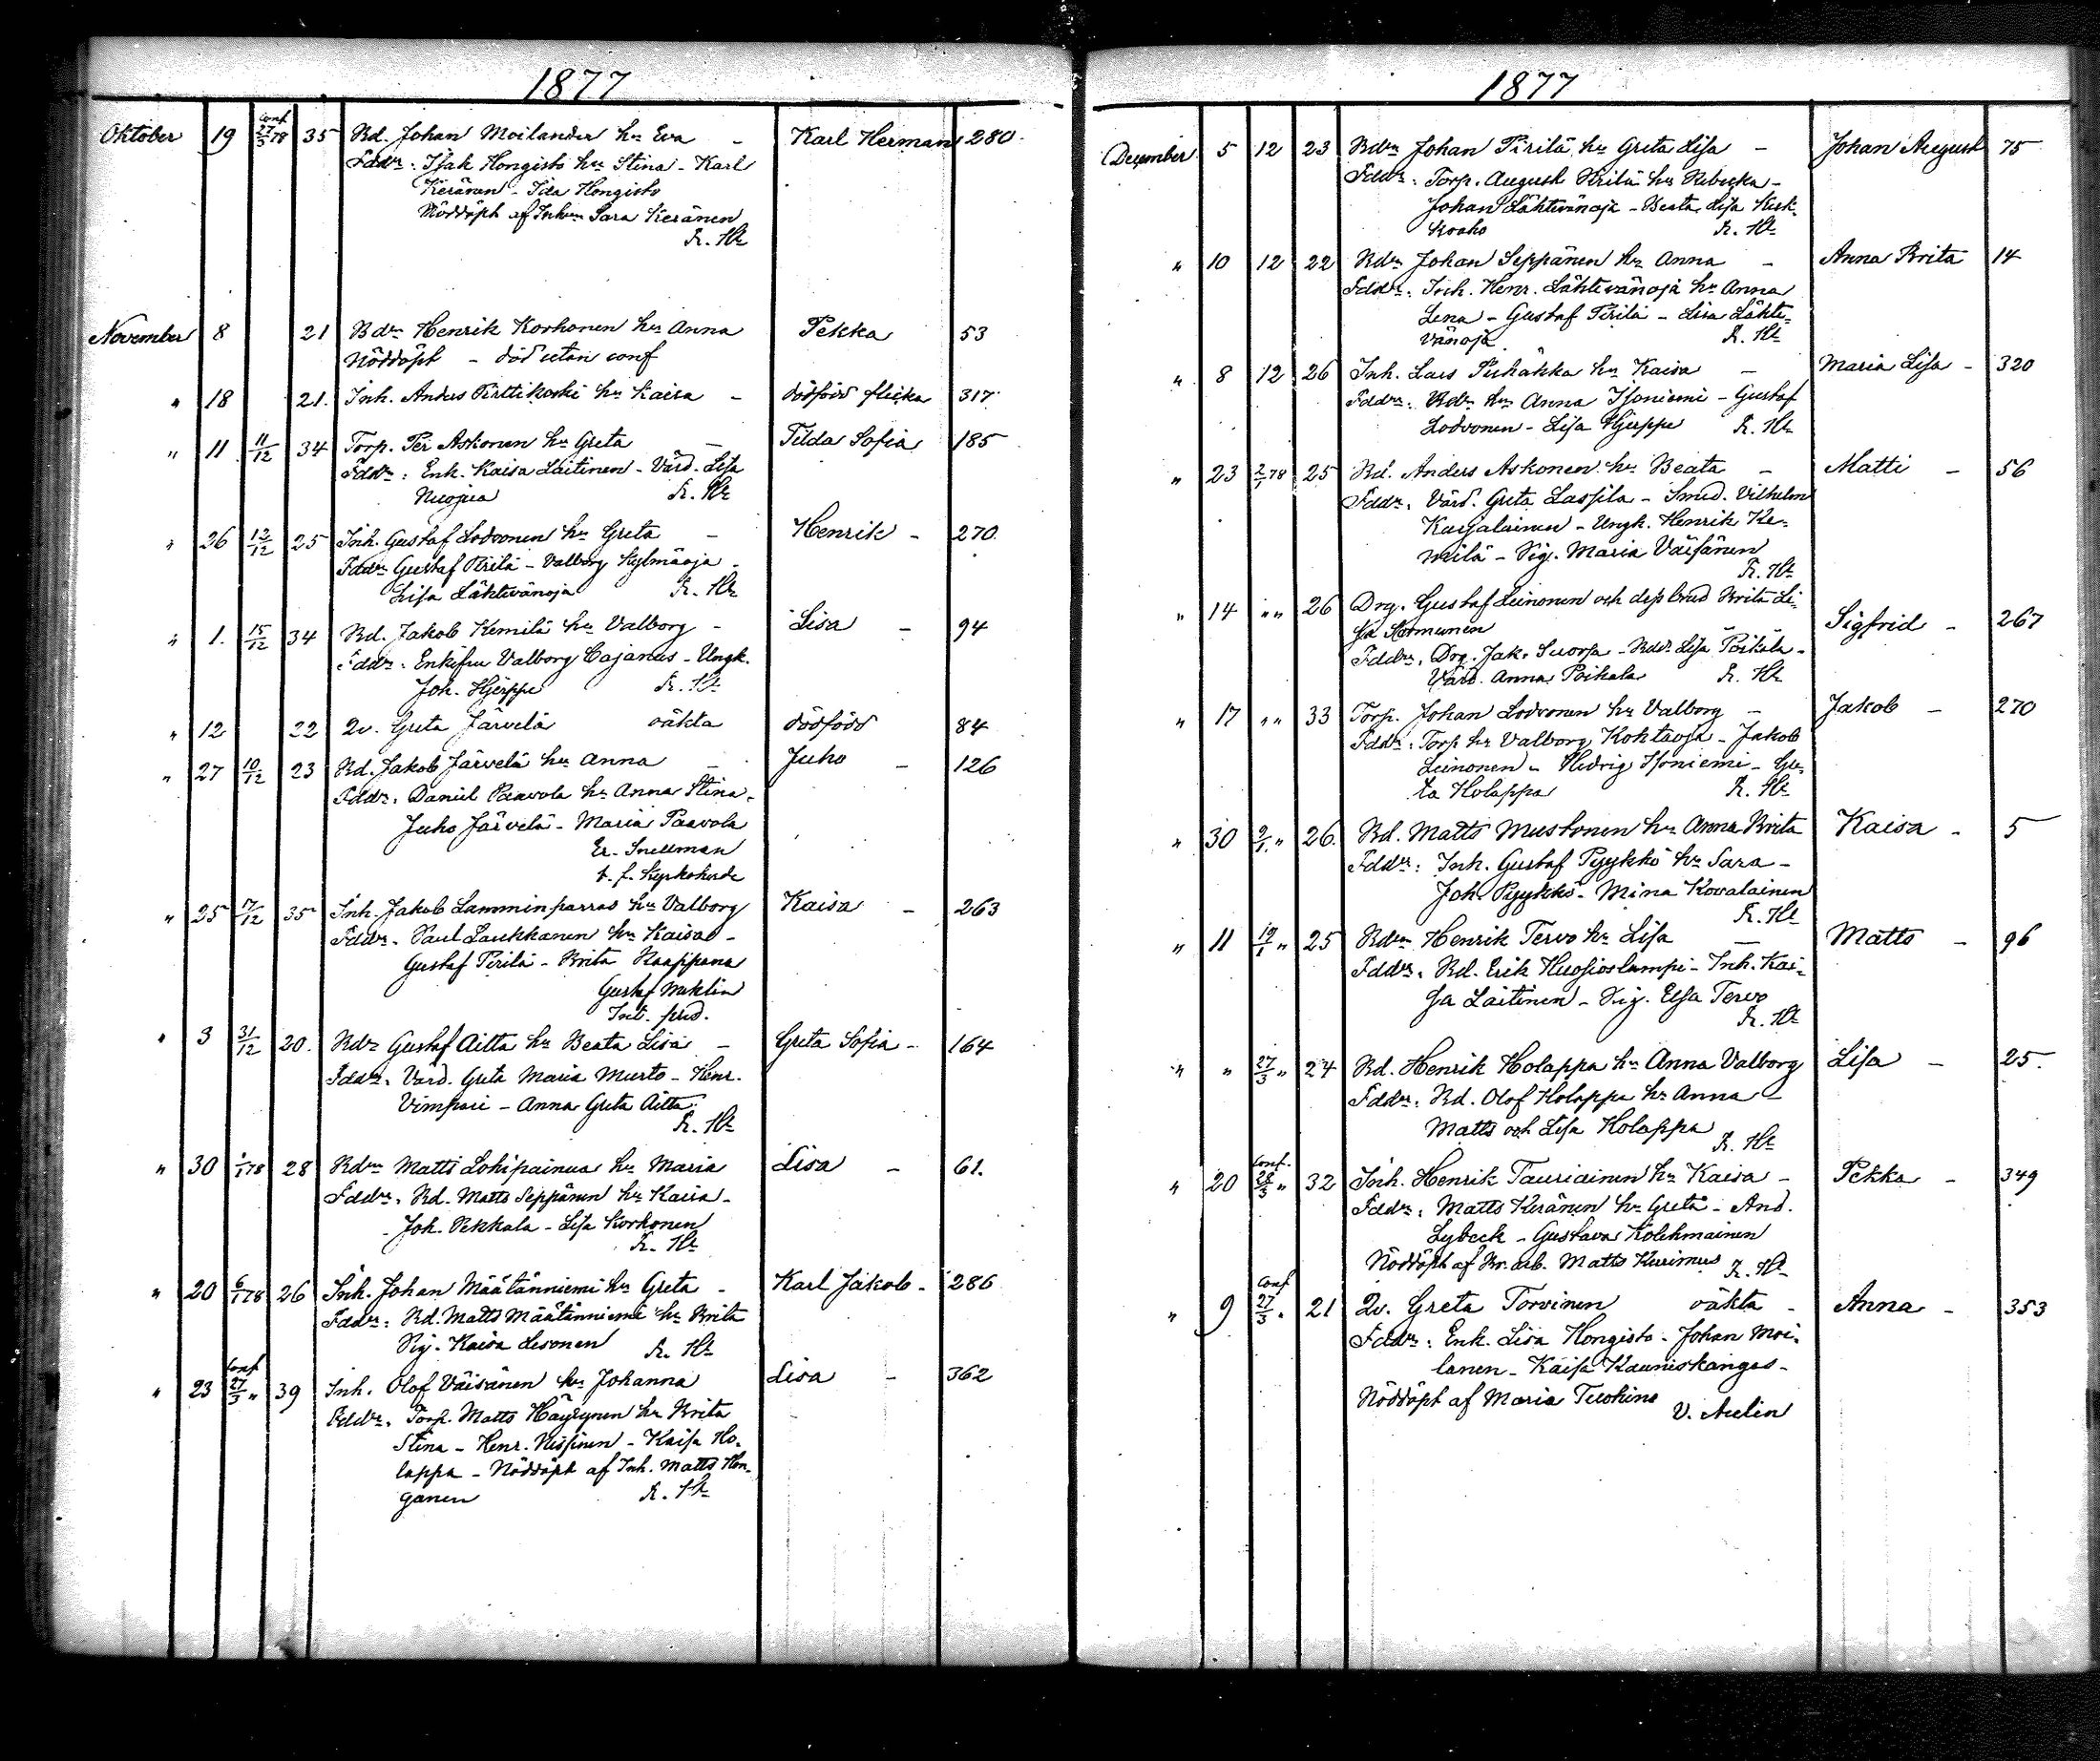 1877
Oktober 19 conf 27/3 78 35 Bd. Johan Moilander hu Eva - Karl Herman 280.
Fddr: Isak Hongisto hu Stina - Karl
Keränen - Ida Hongisto
Nöddöpt af Inhn Sara Keränen
R. Hr
November 8 21 Bdn Henrik Korhonen hu Anna Pekka 53
Nöddöpt - död utan conf
" 18 21. Inh. Anders Pirttikoski hu Kaisa - dödfödd flicka 317
" 11 11/12 34 Torp. Per Askonen hu Greta - Tilda Sofia 185
Fddr: Enk. Kaisa Laitinen - Värd. Lisa
Nuopua R. Hr
" 26 12/12 25 Inh. Gustaf Lodvonen hu Greta - Henrik - 270.
Fddr Gustaf Pirilä - Valborg Kylmäoja -
Lisa Lähtevänoja R. Hr
" 1. 15/12 34 Bd. Jakob Kemilä hu Valborg - Lisa - 94
Fddr: Enkefru Valborg Cajanus - Ungk.
Joh. Hjerppe R. Hr
" 12 22 Qv. Greta Järvelä oäkta dödfödd 84
" 27 10/12 23 Bd. Jakob Järvelä hu Anna - Juho - 126
Fddr. Daniel Paavola hu Anna Stina -
Juho Järvelä - Maria Paavola
Er. Snellman
t. f. kyrkoherde
" 25 17/12 35 Inh. Jakob Lamminparras hu Valborg Kaisa - 263
Fddr. Paul Laukkanen hu Kaisa -
Gustaf Pirilä - Brita Kaappana
Gustaf Meklin
Int. pred.
" 3 31/12 20. Bdn Gustaf Aitta hu Beata Lisa - Greta Sofia - 164
Fddr. Värd. Greta Maria Murto - Henr.
Vimpari - Anna Greta Aitta.
R. Hr
" 30 1/1 78 28 Bdn Matti Lohipainua hu Maria Lisa - 61.
Fddr. Bd. Matts Seppänen hu Kaisa -
Joh. Pekkala - Lisa Korhonen
R. Hr
" 20 6/1 78 26 Inh. Johan Määtänniemi hu Greta - Karl Jakob - 286
Fddr: Bd. Matts Määtänniemi hu Brita
Pig. Kaisa Lesonen R. Hr
" 23 conf 27/3 " 39 Inh. Olof Väisänen hu Johanna Lisa - 362
Fddr. Torp. Matts Häyrynen hu Brita
Stina - Henr. Nissinen - Kaisa Ho-
lappa - Nöddöpt af Inh. Matts Hon-
ganen R. Hr
1877
December 5 12 23 Bdn Johan Pirilä hu Greta Lisa - Johan August 75
Fddr: Torp. August Pirilä hu Rebecka -
Johan Lähtevänoja - Beata Lisa Kesk-
R. Hr
" 10 12 22 Bdn Johan Seppänen hu Anna - Anna Brita 14
Fddr. Inh. Henr. Lähtevänoja hu Anna
Lena - Gustaf Pirilä - Lisa Lähte-
vänoja R. Hr
" 8 12 26 Inh. Lars hu Kaisa - Maria Lisa - 320
Fddr. Bdn hu Anna Isoniemi - Gustaf
Lodvonen - Lisa Hjerppe R. Hr
" 23 2/1 78 25 Bd. Anders Askonen hu Beata - Matti - 56
Fddr. Värd. Greta Lassila - Smed. Vilhelm
Karjalainen - Ungk. Henrik Ke-
milä - Pig. Maria Väisänen
R. Hr
" 14 " " 26 Drg. Gustaf Leinonen och dess brud Brita Li-
sa Sormunen Sigfrid - 267
Fddr. Drg. Jak. Suorsa - Bdn Lisa Poikela -
Värd. Anna Poikela R. Hr
" 17 " " 33 Torp. Johan Lodvonen hu Valborg - Jakob - 270
Fddr: Torp hu Valborg Kohtaoja - Jakob
Leinonen - Hedvig Isoniemi - Gre-
ta Holappa R. Hr
" 30 9/1 " 26. Bd. Matts Mustonen hu Anna Brita Kaisa - 5
Fddr: Inh. Gustaf Pyykkö hu Sara -
Joh. Pyykkö - Mina Kovalainen
R. Hr
" 11 19/1 " 25 Bdn Henrik Tervo hu Lisa - Matts - 96
Fddr. Bd. Erik Huosioslampi - Inh. Kai-
sa Laitinen - Pig. Elsa Tervo
R. Hr
" " 27/3 " 24 Bd. Henrik Holappa hu Anna Valborg Lisa - 25.
Fddr. Bd. Olof Holappa hu Anna -
Matts och Lisa Holappa
R. Hr
" 20 conf. 28/3 " 32 Inh. Henrik Tauriainen hu Kaisa - Pekka - 349
Fddr. Matts Keränen hu Greta - And.
Lybeck - Gustava Kolehmainen
Nöddöpt af Kr. arb. Matts Kurimus R. Hr
" 9 conf 27/3 " 21 Qv. Greta Torvinen oäkta - Anna - 353
Fddr: Enk. Lisa Hongisto - Johan Moi-
lanen - Kaisa Kauniskangas -
Nöddöpt af Maria Tuohino
V. Aulin